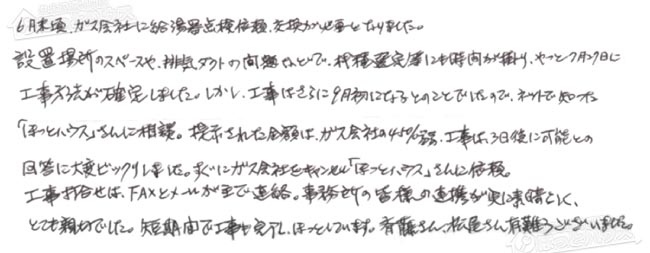 6月末頃、ガス会社に給湯器点検依頼、交換が必要となりました。
設置場所のスペースや、排気ダクトの問題などで、機種選定等にも時間が掛り、やっと7月27日に
工事方法が確定しました。しかし、工事はさらに9月初になるとのことでしたので、ネットで知った
「ほっとハウス」さんに相談。提示された金額は、ガス会社の45%弱、工事は、3日後に可能との
回答に大変ビックリしました。すぐにガス会社をキャンセル「ほっとハウス」さんに依頼。
工事打合せは、FAXとメールがまで連絡。事務所の皆様の連携が実に素晴らしく、
とても親切でした。短期間で工事も完了し、ほっとしています。斉藤さん、松尾さん有難うございました。